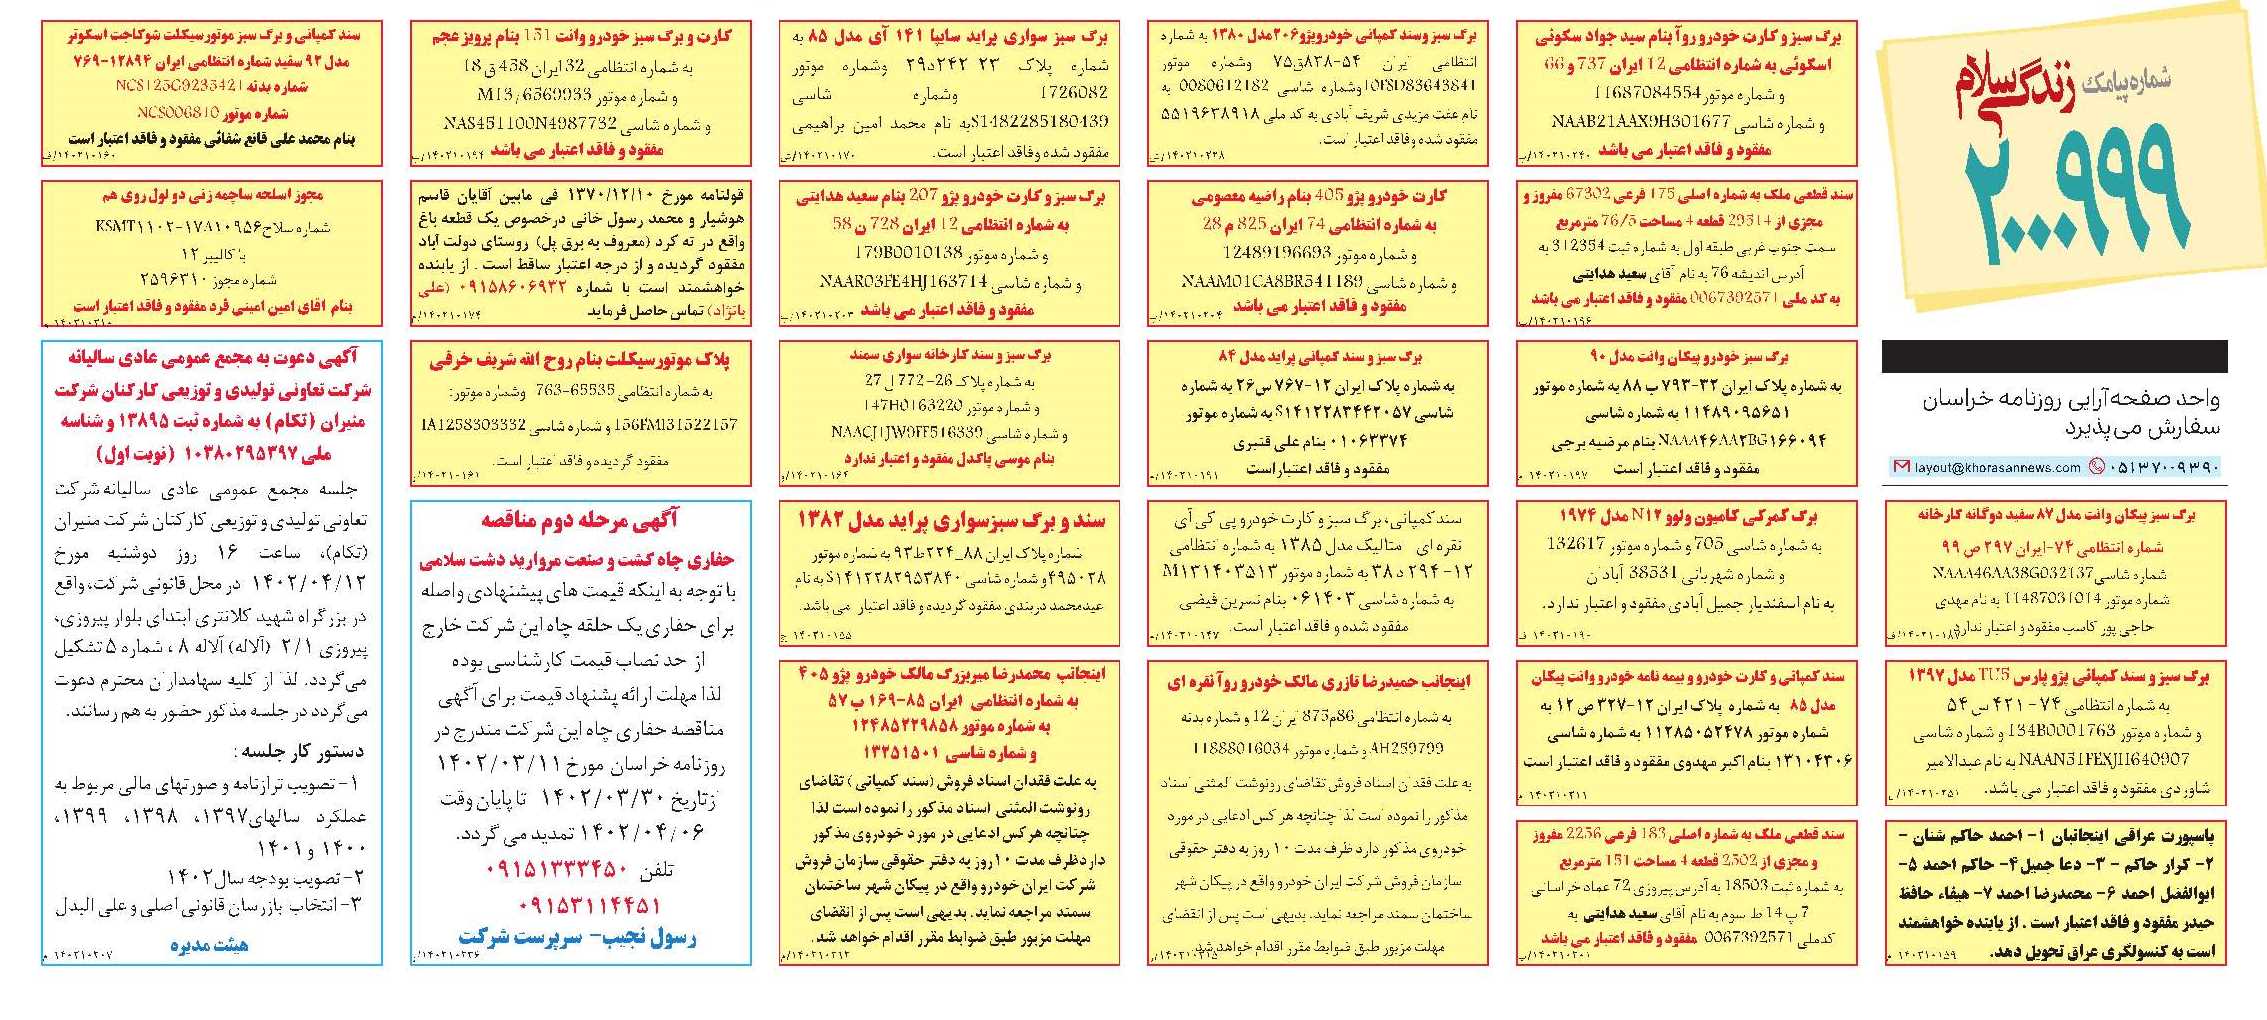 شماره پیامک زندگی سلام
۲۰۰۰۹۹۹
واحد صفحه‌آرایی روزنامه خراسان
سفارش می‌پذیرد
۰۵۱۳۷۰۰۹۳۹۰ layout@khorasannews.com
برگ سبز پیکان وانت مدل ۸۷ سفید دوگانه کارخانه
شماره انتظامی ۷۴-ایران ۲۹۷ ص ۹۹
شماره شاسی NAAA46AA38G032137
شماره موتور 11487031014 به نام مهدی
حاجی پور کاسب مفقود و اعتبار ندارد
برگ سبز و سند کمپانی پژو پارس TU5 مدل ۱۳۹۷
به شماره انتظامی ۷۴ - ۴۲۱ س ۵۴
و شماره موتور 134B0001763 و شماره شاسی
NAAN51FEXJH640907 به نام عبدالامیر
شاوردی مفقود و فاقد اعتبار می باشد.
پاسپورت عراقی اینجانبان ۱- احمد حاکم شنان -
۲- کرار حاکم - ۳- دعا جمیل ۴- حاکم احمد ۵-
ابوالفضل احمد ۶- محمدرضا احمد ۷- هیفاء حافظ
حیدر مفقود و فاقد اعتبار است . از یابنده خواهشمند
است به کنسولگری عراق تحویل دهد.
۱۴۰۲۱۰۱۵۹
برگ سبز و کارت خودرو روآ بنام سید جواد سکوئی
اسکوئی به شماره انتظامی 12 ایران 737 و 66
و شماره موتور 11687084554
و شماره شاسی NAAB21AAX9H301677
مفقود و فاقد اعتبار می باشد
۱۴۰۲۱۰۲۴۰/پ
سند قطعی ملک به شماره اصلی 175 فرعی 67302 مفروز و
مجزی از 29514 قطعه 4 مساحت 76/5 مترمربع
سمت جنوب غربی طبقه اول به شماره ثبت 312354 به
آدرس اندیشه 76 به نام آقای سعید هدایتی
به کد ملی 0067392571 مفقود و فاقد اعتبار می باشد
۱۴۰۲۱۰۱۹۶/پ
برگ سبز خودرو پیکان وانت مدل ۹۰
به شماره پلاک ایران ۳۲-۷۹۳ ب ۸۸ به شماره موتور
۱۱۴۸۹۰۹۵۶۵۱ به شماره شاسی
NAAA۴۶AA۲BG۱۶۶۰۹۴ بنام مرضیه برجی
مفقود و فاقد اعتبار است
۱۴۰۲۱۰۱۹۷ م
برگ گمرکی کامیون ولوو N۱۲ مدل ۱۹۷۴
به شماره شاسی 705 و شماره موتور 132617
و شماره شهربانی 38531 آبادان
به نام اسفندیار جمیل آبادی مفقود و اعتبار ندارد.
۱۴۰۲۱۰۱۹۰ ف
سند کمپانی و کارت خودرو و بیمه نامه خودرو وانت پیکان
مدل ۸۵ به شماره پلاک ایران ۱۲-۳۲۷ ص ۱۲ به
شماره موتور ۱۱۲۸۵۰۵۲۴۷۸ به شماره شاسی
۱۳۱۰۴۳۰۶ بنام اکبر مهدوی مفقود و فاقد اعتبار است
۱۴۰۲۱۰۲۱۱ م
سند قطعی ملک به شماره اصلی 183 فرعی 2256 مفروز
و مجزی از 2502 قطعه 4 مساحت 151 مترمربع
به شماره ثبت 18503 به آدرس پیروزی 72 عماد خراسانی
7 پ 14 ط سوم به نام آقای سعید هدایتی به
کدملی 0067392571 مفقود و فاقد اعتبار می باشد
۱۴۰۲۱۰۲۰۱/پ
برگ سبز و سند کمپانی خودرو پژو ۲۰۶ مدل ۱۳۸۰ به شماره
انتظامی ایران ۵۴-۸۳۸ق۷۵ وشماره موتور
10FSD83643841 وشماره شاسی 0080612182 به
نام عفت مزیدی شریف آبادی به کد ملی ۵۵۱۹۶۳۸۹۱۸
مفقود شده وفاقد اعتبار است.
کارت خودرو پژو 405 بنام راضیه معصومی
به شماره انتظامی 74 ایران 825 م 28
و شماره موتور 12489196693
و شماره شاسی NAAM01CA8BR541189
مفقود و فاقد اعتبار می باشد
۱۴۰۲۱۰۲۰۴/پ
برگ سبز و سند کمپانی پراید مدل ۸۴
به شماره پلاک ایران ۱۲-۷۶۷ س۲۶ به شماره
شاسی S۱۴۱۲۲۸۳۴۴۲۰۵۷ به شماره موتور
۰۱۰۶۳۳۷۴ بنام علی قنبری
مفقود و فاقد اعتبار است
۱۴۰۲۱۰۱۹۱ م
سند کمپانی، برگ سبز و کارت خودرو پی کی آی
نقره ای - متالیک مدل ۱۳۸۵ به شماره انتظامی
۱۲-۲۹۴ د ۳۸ به شماره موتور M۱۳۱۴۰۳۵۱۳
به شماره شاسی ۰۶۱۴۰۳ بنام نسرین فیضی
مفقود شده و فاقد اعتبار است.
اینجانب حمیدرضا نازری مالک خودرو روآ نقره ای
به شماره انتظامی 86م875 ایران 12 و شماره بدنه
AH259799 و شماره موتور 11888016034
به علت فقدان اسناد فروش تقاضای رونوشت المثنی اسناد
مذکور را نموده است لذا چنانچه هر کس ادعایی در مورد
خودروی مذکور دارد ظرف مدت ۱۰ روز به دفتر حقوقی
سازمان فروش شرکت ایران خودرو واقع در پیکان شهر
ساختمان سمند مراجعه نماید. بدیهی است پس از انقضای
مهلت مزبور طبق ضوابط مقرر اقدام خواهد شد.
برگ سبز سواری پراید سایپا ۱۴۱ آی مدل ۸۵ به
شماره پلاک ۲۳ ۲۴۲د۲۹ وشماره موتور
1726082 وشماره شاسی
S1482285180439 به نام محمد امین براهیمی
مفقود شده وفاقد اعتبار است.
برگ سبز و کارت خودرو پژو 207 بنام سعید هدایتی
به شماره انتظامی 12 ایران 728 ن 58
و شماره موتور 179B0010138
و شماره شاسی NAAR03FE4HJ163714
مفقود و فاقد اعتبار می باشد
۱۴۰۲۱۰۲۰۳/پ
برگ سبز و سند کارخانه سواری سمند
به شماره پلاک 26-772 ل 27
و شماره موتور 147H0163220
و شماره شاسی NAACJ1JW9FF516339
بنام موسی پاکدل مفقود و اعتبار ندارد
سند و برگ سبز سواری پراید مدل ۱۳۸۲
شماره پلاک ایران ۸۸_۲۲۴ط۹۳ به شماره موتور
۴۹۵۰۲۸ و شماره شاسی S۱۴۱۲۲۸۲۹۵۳۸۴۰ به نام
عیدمحمد دربندی مفقود گردیده و فاقد اعتبار می باشد.
۱۴۰۲۱۰۱۵۵ ج
اینجانب محمدرضا میربزرگ مالک خودرو پژو ۴۰۵
به شماره انتظامی ایران ۸۵-۱۶۹ ب ۵۷
به شماره موتور ۱۲۴۸۵۲۲۹۸۵۸
و شماره شاسی ۱۳۲۵۱۵۰۱
به علت فقدان اسناد فروش (سند کمپانی ) تقاضای
رونوشت المثنی اسناد مذکور را نموده است لذا
چنانچه هرکس ادعایی در مورد خودروی مذکور
داردظرف مدت ۱۰روز به دفتر حقوقی سازمان فروش
شرکت ایران خودرو واقع در پیکان شهر ساختمان
سمند مراجعه نماید. بدیهی است پس از انقضای
مهلت مزبور طبق ضوابط مقرر اقدام خواهد شد.
۱۴۰۲۱۰۲۱۲/م
کارت و برگ سبز خودرو وانت 151 بنام پرویز عجم
به شماره انتظامی 32 ایران 458 ق 18
و شماره موتور M13/6569933
و شماره شاسی NAS451100N4987732
مفقود و فاقد اعتبار می باشد
۱۴۰۲۱۰۱۹۴/پ
قولنامه مورخ ۱۳۷۰/۱۲/۱۰ فی مابین آقایان قاسم
هوشیار و محمد رسول خانی درخصوص یک قطعه باغ
واقع در ته کرد (معروف به برق پل) روستای دولت آباد
مفقود گردیده و از درجه اعتبار ساقط است . از یابنده
خواهشمند است با شماره ۰۹۱۵۸۶۰۶۹۳۲ (علی
بانژاد) تماس حاصل فرماید
۱۴۰۲۱۰۱۷۴/م
پلاک موتورسیکلت بنام روح الله شریف خرقی
به شماره انتظامی 65535-763 وشماره موتور:
156FMI31522157 و شماره شاسی IA1258303332
مفقود گردیده و فاقد اعتبار است.
آگهی مرحله دوم مناقصه
حفاری چاه کشت و صنعت مروارید دشت سلامی
با توجه به اینکه قیمت های پیشنهادی واصله
برای حفاری یک حلقه چاه این شرکت خارج
از حد نصاب قیمت کارشناسی بوده
لذا مهلت ارائه پشنهاد قیمت برای آگهی
مناقصه حفاری چاه این شرکت مندرج در
روزنامه خراسان مورخ ۱۴۰۲/۰۳/۱۱
ازتاریخ ۱۴۰۲/۰۳/۳۰ تا پایان وقت
۱۴۰۲/۰۴/۰۶ تمدید می گردد.
تلفن ۰۹۱۵۱۳۳۳۴۵۰
۰۹۱۵۳۱۱۴۴۵۱
رسول نجیب- سرپرست شرکت
سند کمپانی و برگ سبز موتورسیکلت شوکاجت اسکوتر
مدل ۹۲ سفید شماره انتظامی ایران ۱۲۸۹۴-۷۶۹
شماره بدنه NCS125G923542۱
شماره موتور NCS006810
بنام محمد علی قانع شفائی مفقود و فاقد اعتبار است
۱۴۰۲۱۰۱۶۰/ف
مجوز اسلحه ساچمه زنی دو لول روی هم
شماره سلاح KSMT۱۱۰۲-۱۷A۱۰۹۵۶
با کالیبر ۱۲
شماره مجوز ۲۵۹۶۳۱۰
بنام آقای امین امینی فرد مفقود و فاقد اعتبار است
۱۴۰۲۱۰۲۱۰/م
آگهی دعوت به مجمع عمومی عادی سالیانه
شرکت تعاونی تولیدی و توزیعی کارکنان شرکت
منیران (تکام) به شماره ثبت ۱۳۸۹۵ و شناسه
ملی ۱۰۳۸۰۲۹۵۳۹۷ (نوبت اول)
جلسه مجمع عمومی عادی سالیانه شرکت
تعاونی تولیدی و توزیعی کارکنان شرکت منیران
(تکام)، ساعت ۱۶ روز دوشنبه مورخ
۱۴۰۲/۰۴/۱۲ در محل قانونی شرکت، واقع
در بزرگراه شهید کلانتری ابتدای بلوار پیروزی،
پیروزی ۲/۱ (آلاله) آلاله ۸ ، شماره ۵ تشکیل
می‌گردد. لذا از کلیه سهامداران محترم دعوت
می‌گردد در جلسه مذکور حضور به هم رسانند.
دستور کار جلسه :
۱- تصویب ترازنامه و صورتهای مالی مربوط به
عملکرد سالهای۱۳۹۷، ۱۳۹۸، ۱۳۹۹،
۱۴۰۰ و ۱۴۰۱
۲- تصویب بودجه سال ۱۴۰۲
۳- انتخاب بازرسان قانونی اصلی و علی البدل
هیئت مدیره
۱۴۰۲۱۰۲۰۷ م